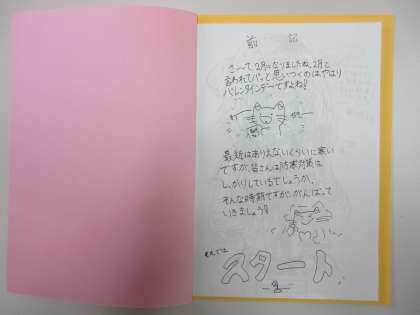 前記
さ〜て、2月になりましたね。2月と
言われてパッと思いつくのはやはり
バレンタインデーですよね!
最近はありえないくらいに寒い
ですが、皆さんは防寒対策は
しっかりしているでしょうか。
そんな時期ですが、がんばって
いきましょう!
それでは
スタート